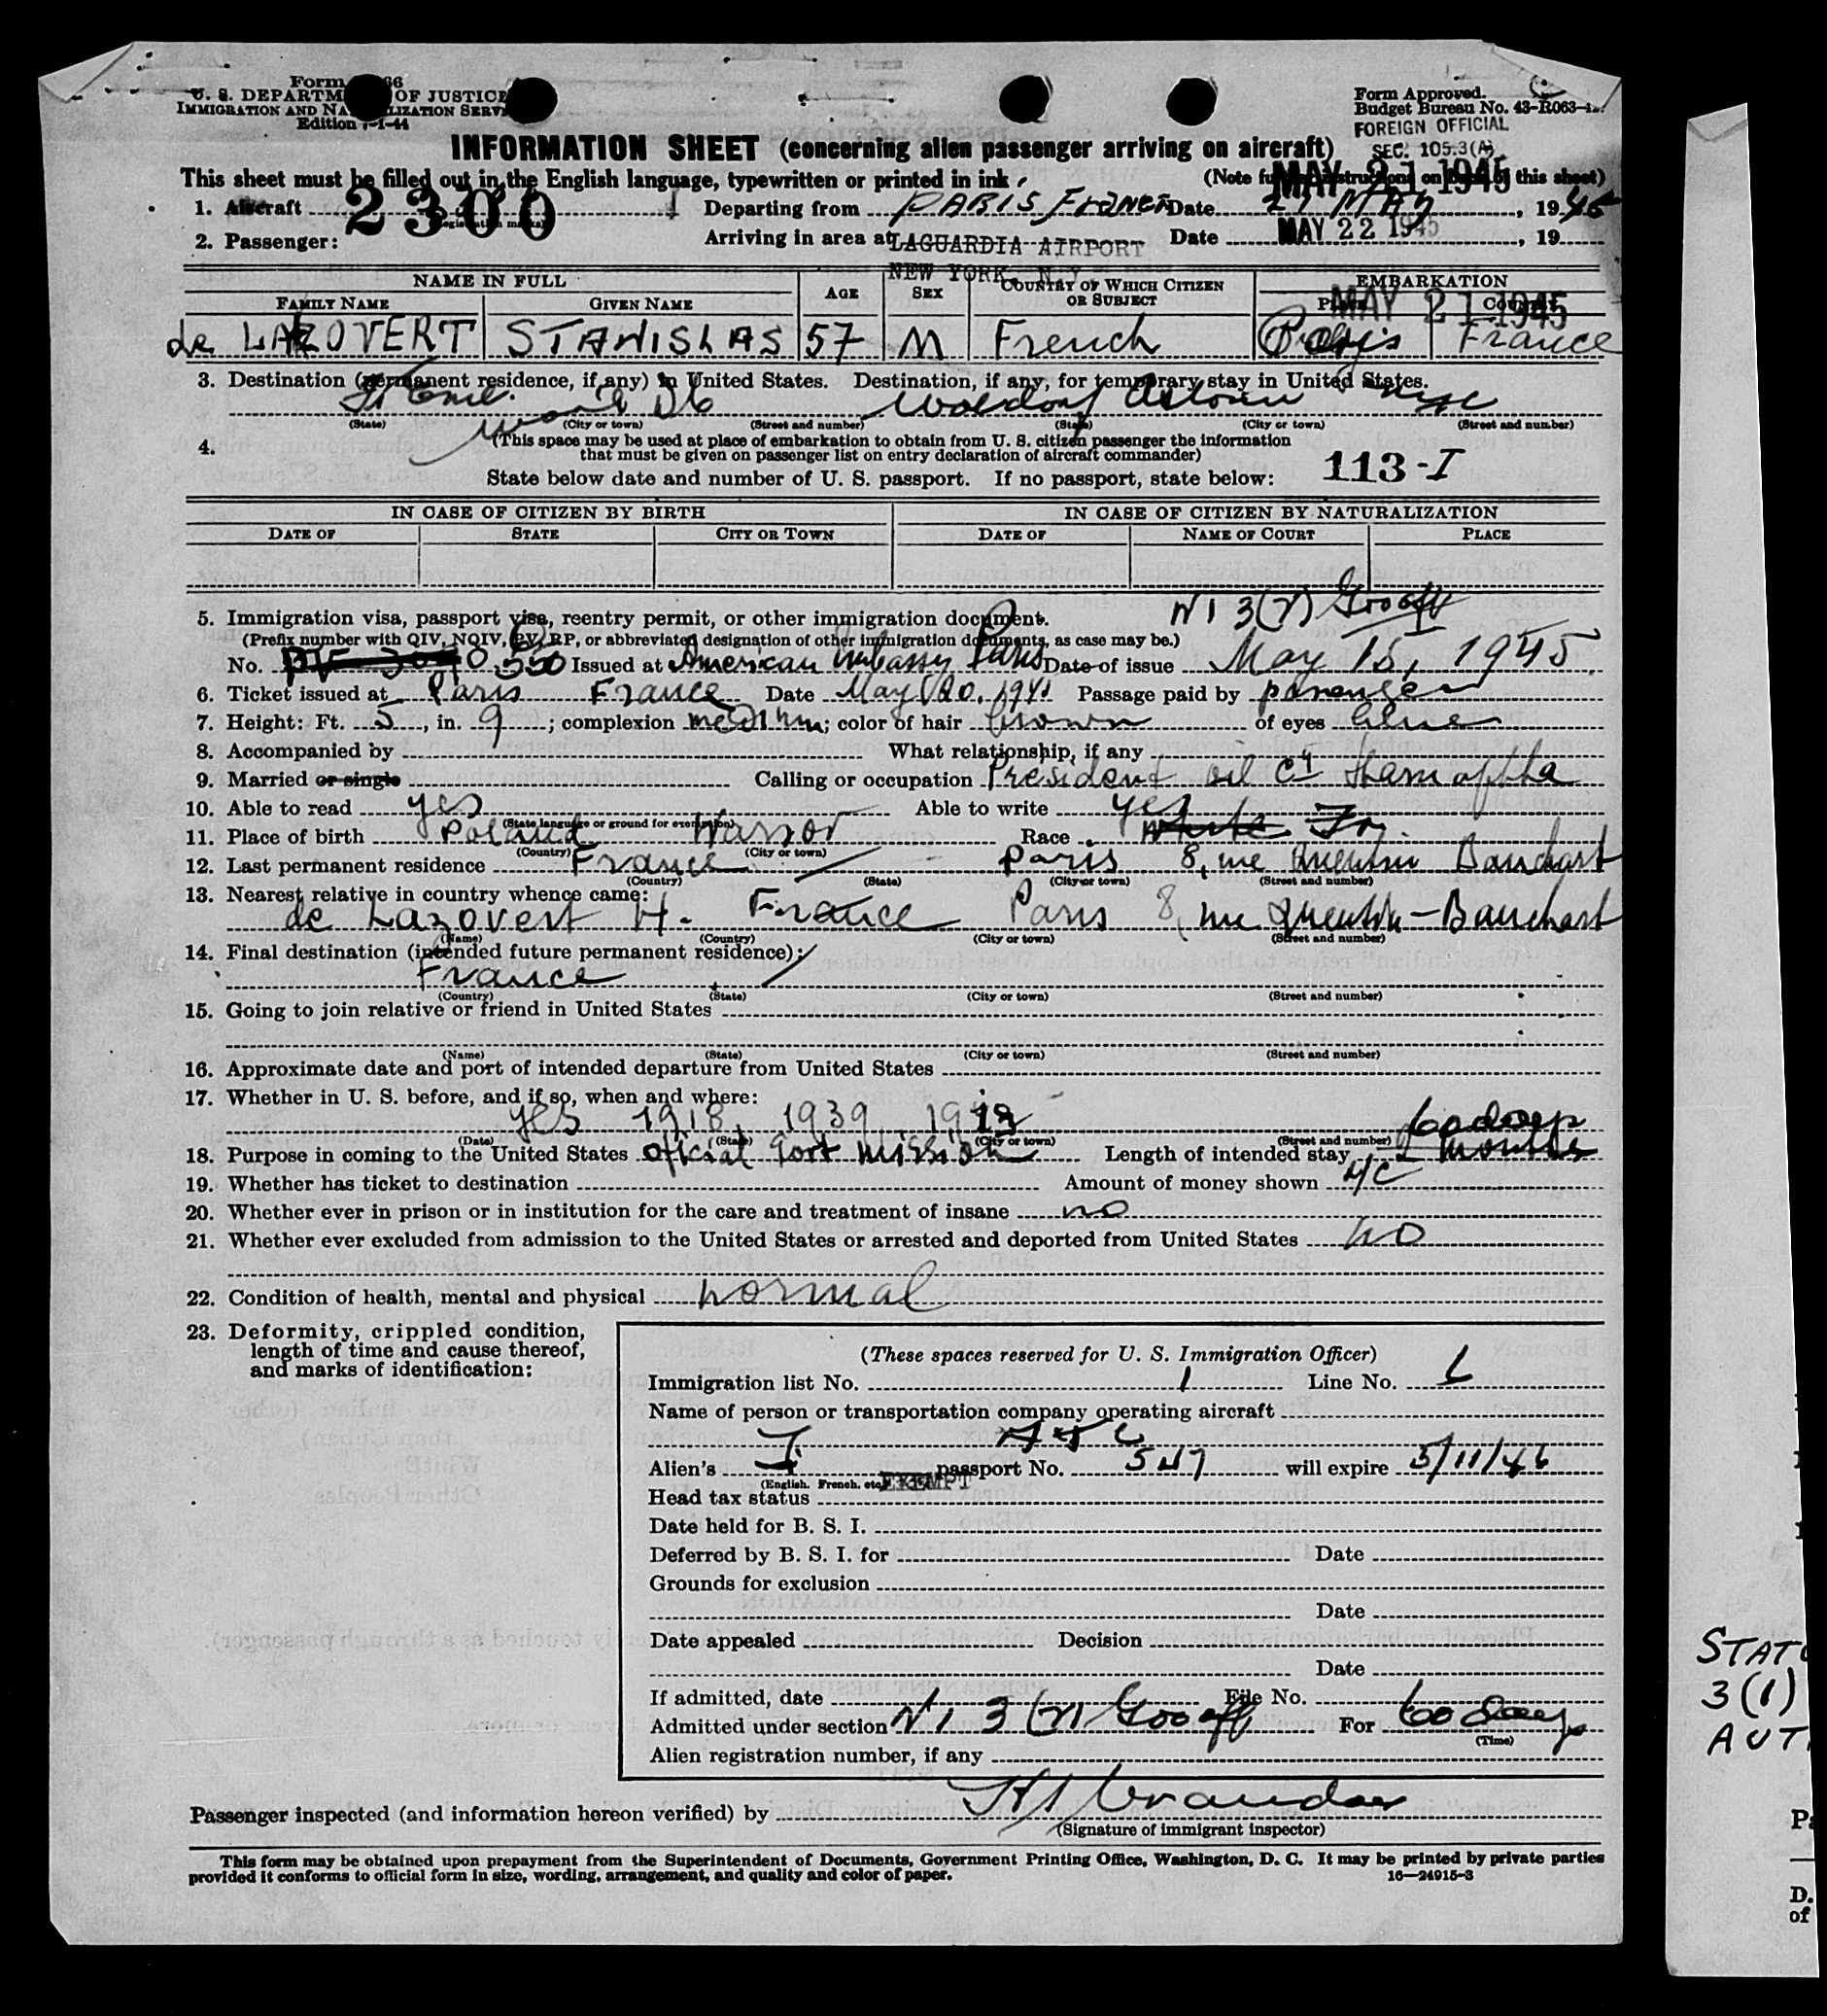 Form 66
U. S. DEPARTM OF JUSTICE
IMMIGRATION AND NA LIZATION SERV
Edition 7-1-44
Form Approved.
Budget Bureau No. 43-R063-
FOREIGN OFFICIAL
SEC. 105.3(A)
INFORMATION SHEET (concerning alien passenger arriving on aircraft)
MAY 21 1945
This sheet must be filled out in the English language, typewritten or printed in ink. (Note further instructions on back of this sheet)
1. Aircraft 2300 Departing from PARIS FRANCE Date 21 MAY, 1945
2. Passenger: Arriving in area at LAGUARDIA AIRPORT Date MAY 22 1945, 19
NEW YORK, N.Y.
NAME IN FULL EMBARKATION
FAMILY NAME GIVEN NAME AGE SEX COUNTRY OF WHICH CITIZEN OR SUBJECT PLACE COUNTRY
MAY 21 1945
de LAZOVERT STANISLAS 57 M French Paris France
3. Destination (permanent residence, if any) in United States. Destination, if any, for temporary stay in United States.
Wash DC Waldorf Astoria NYC
(State) (City or town) (Street and number) (State) (City or town) (Street and number)
4. (This space may be used at place of embarkation to obtain from U. S. citizen passenger the information
that must be given on passenger list on entry declaration of aircraft commander)
State below date and number of U. S. passport. If no passport, state below: 113-I
IN CASE OF CITIZEN BY BIRTH IN CASE OF CITIZEN BY NATURALIZATION
DATE OF STATE CITY OR TOWN DATE OF NAME OF COURT PLACE
5. Immigration visa, passport visa, reentry permit, or other immigration document. NI 3(7) Gvt off
(Prefix number with QIV, NQIV, PV, RP, or abbreviated designation of other immigration documents, as case may be.)
No. 550 Issued at American Embassy Paris Date of issue May 15, 1945
6. Ticket issued at Paris France Date May 20. 1945 Passage paid by passenger
7. Height: Ft. 5, in. 9; complexion medium; color of hair brown of eyes blue
8. Accompanied by What relationship, if any
9. Married or single Calling or occupation President oil Cy
10. Able to read yes Able to write yes
(State language or ground for exemption)
11. Place of birth Poland Warsov Race White Fr.
(Country) (City or town)
12. Last permanent residence France Paris 8, rue Quentin Bauchart
(Country) (State) (City or town) (Street and number)
13. Nearest relative in country whence came:
de Lazovert H. France Paris 8, rue Quentin-Bauchart
(Name) (Country) (City or town) (Street and number)
14. Final destination (intended future permanent residence):
France
(Country) (State) (City or town) (Street and number)
15. Going to join relative or friend in United States
(Name) (State) (City or town) (Street and number)
16. Approximate date and port of intended departure from United States
17. Whether in U. S. before, and if so, when and where:
yes 1918, 1939, 60 days
(Date) (State) (City or town) (Street and number)
18. Purpose in coming to the United States Official Gort Mission Length of intended stay 2 months
19. Whether has ticket to destination Amount of money shown
20. Whether ever in prison or in institution for the care and treatment of insane no
21. Whether ever excluded from admission to the United States or arrested and deported from United States no
22. Condition of health, mental and physical normal
23. Deformity, crippled condition,
length of time and cause thereof,
and marks of identification:
(These spaces reserved for U. S. Immigration Officer)
Immigration list No. 1 Line No. 6
Name of person or transportation company operating aircraft
ATC
Alien's F. passport No. 547 will expire 5/11/46
(English. French. etc.)
Head tax status EXEMPT
Date held for B. S. I.
Deferred by B. S. I. for Date
Grounds for exclusion
Date
Date appealed Decision
Date
If admitted, date File No.
Admitted under section NI 3 (7) Gvt off For 60 days
(Time)
Alien registration number, if any
Passenger inspected (and information hereon verified) by
(Signature of immigrant inspector)
This form may be obtained upon prepayment from the Superintendent of Documents, Government Printing Office, Washington, D. C. It may be printed by private parties
provided it conforms to official form in size, wording, arrangement, and quality and color of paper. 16—24915-3
STAT
3(1)
AUT
D.
of